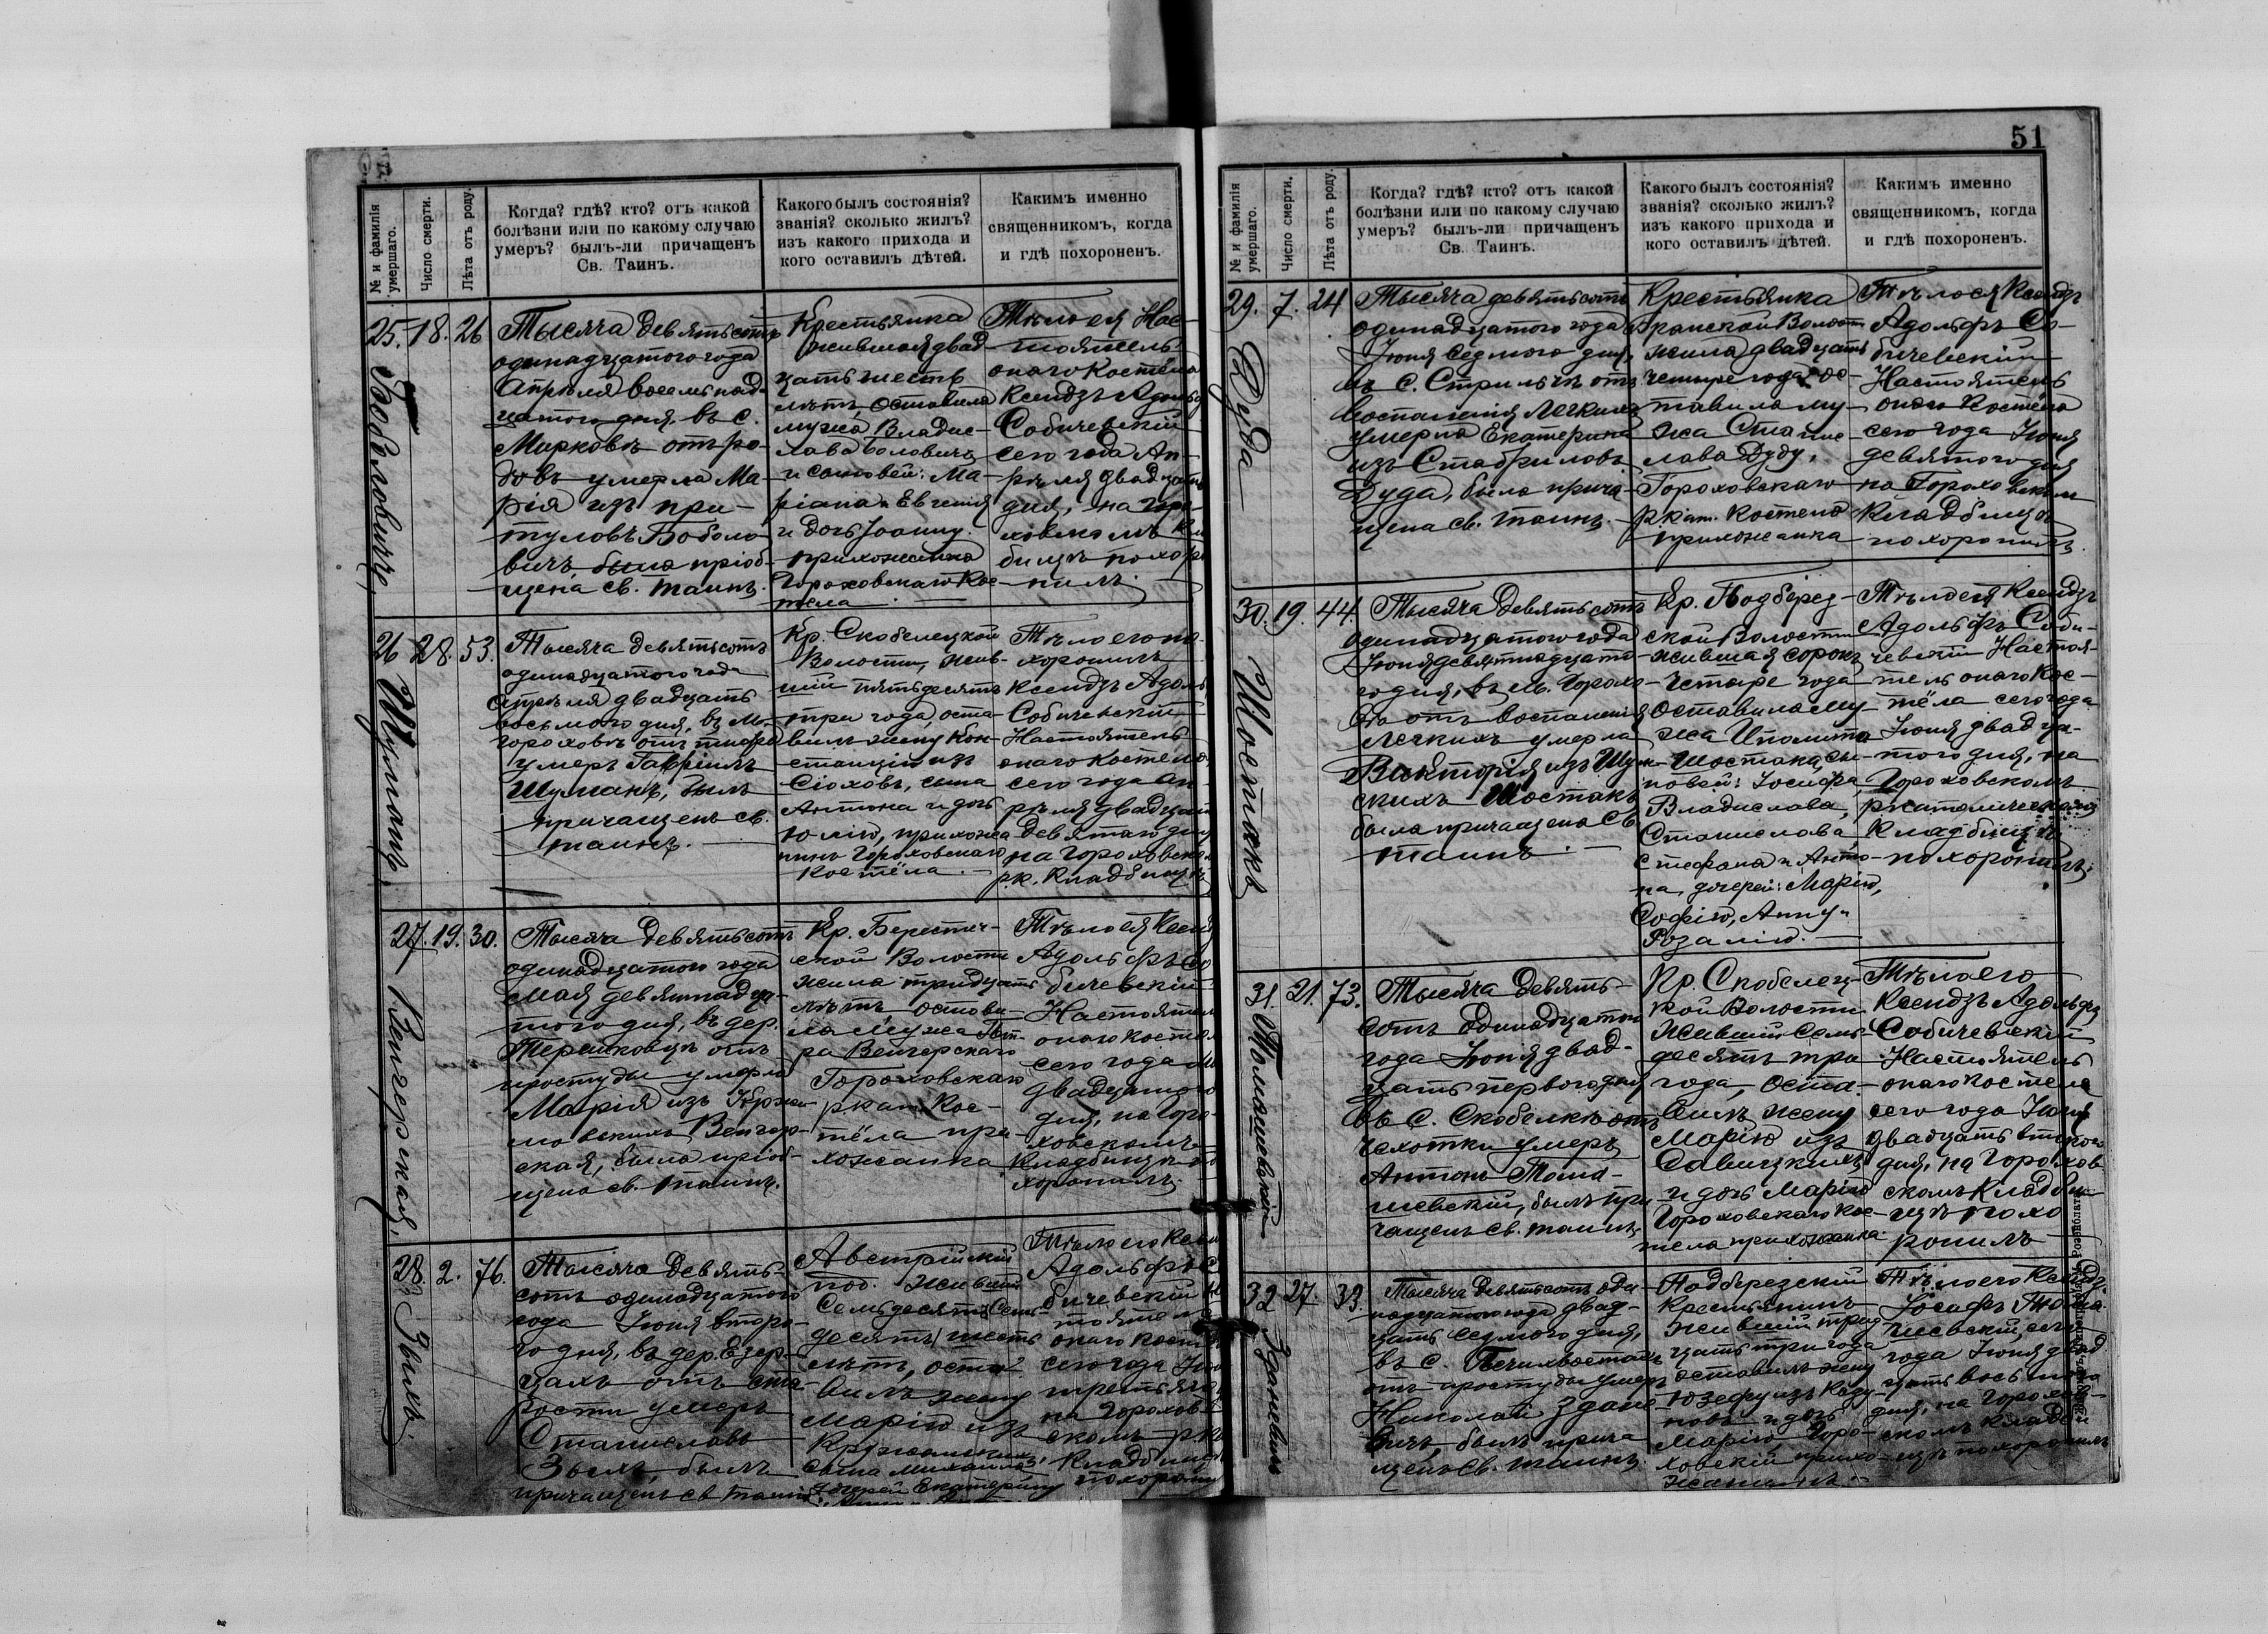 51
№ и фамилія умершаго.
Число смерти.
Лѣта отъ роду.
Когда? гдѣ? кто? отъ какой
болѣзни или по какому случаю
умеръ? былъ-ли причащенъ
Св. Таинъ.
Какого былъ состоянія?
званія? сколько жилъ?
изъ какого прихода и
кого оставилъ дѣтей.
Какимъ именно
священникомъ, когда
и гдѣ похороненъ.
25. 18. 26
Боболовичъ
Тысяча девятьсотъ
одинадцатого года
Апрѣля восемьнад-
цатого дня въ с.
Марковъ отъ ро-
довъ умерла Ма-
рія изъ при-
туловъ Боболо-
вичъ была пріоб-
щена св. таинъ.
Крестьянка
жившая двад-
цать шесть
лѣтъ, оставила
мужа Владис-
лава Боловичъ
и сыновей: Ма-
ріана и Евгенія
и дочь Іоанну.
прихожанка
Гороховскаго Кос-
тела.
Тѣло ея Нас-
тоятель
онаго костёла
Ксендзъ Адольфъ
Собичевскій
сего года Ап-
рѣля двадцать
дня, на Горо-
ховскомъ
бищѣ похоро-
нилъ.
26 28. 53.
Шуманъ
Тысяча девятьсотъ
одинадцатого года
Апрѣля двадцать
восьмого дня, въ М.
Гороховъ отъ тифа
умеръ Гавріилъ
Шуманъ, былъ
причащенъ св.
таинъ.
Кр. Скобелецкой
Волости, жив-
шій пятьдесятъ
три года, оста-
вилъ жену Кон-
станцію изъ
Сіоховъ, сына
Антона и дочь
Юлію, прихожа
нинъ Гороховскаго
костёла.
Тѣло его по-
хоронилъ
Ксендзъ Адоль
Собичевскій
Настоятель
онаго костела
сего года Ап-
рѣля двадцать
девятаго дня
на Гороховско
р.к. кладбищѣ
27. 19. 30.
Венгерская
Тысяча девятьсотъ
одинадцатого года
Мая девятнадца-
того дня, въ дер.
Терешковцѣ отъ
простуды умерла
Марія изъ
мовскихъ Венгер-
ская, была пріоб-
щена св. таинъ.
Кр. Берестеч-
ской Волости
жила тридцать
лѣтъ остави-
ла мужа Пет-
ра Венгерскаго
Гороховскаго
ркат. Кос-
тёла при-
хожанка
Тѣло ея Ксенд
Адольфъ Со
бичевскій
Настоятел
онаго костел
сего года М
двадцатого
дня, на Горо
ховскомъ
кладбищѣ по
хоронилъ.
28. 2. 76.
Зыхъ.
Тысяча девять-
сотъ одинадцатого
года Іюня второ-
го дня, въ дер. Езер-
цахъ отъ ста-
рости умеръ
Станиславъ
Зыхъ, былъ
причащенъ св таинъ
Австрійскій
под. жившій
семьдесятъ Семь-
десятъ шесть
лѣтъ, оста-
вилъ жену
Марію изъ
сына Михаила,
дочерей Екатерину
Тѣло его Ксен
Адольфъ С
бичевскій Н
тоятель
онаго кост
сего года Іюн
третьяго
на Горохов
скомъ рк
кладбищ
похорони
№ и фамилія умершаго.
Число смерти.
Лѣта отъ роду.
Когда? гдѣ? кто? отъ какой
болѣзни или по какому случаю
умеръ? былъ-ли причащенъ
Св. Таинъ.
Какого былъ состоянія?
званія? сколько жилъ?
изъ какого прихода и
кого оставилъ дѣтей.
Какимъ именно
священникомъ, когда
и гдѣ похороненъ.
29. 7. 24
Дуда
Тысяча девятьсотъ
одинадцатого года
Іюня седмого дня,
въ С. Стрильчѣ отъ
воспаленія легкихъ
умерла Екатерина
изъ Стабриловъ
Дуда, была прича-
щена св. таинъ.
Крестьянка
Бранской Волости
жила двадцать
четыре года ос-
тавила му-
жа Станис-
лава Дуду,
Гороховскаго
р.кат. костела
прихожанка
Тѣло ея Ксендзъ
Адольфъ Со-
бичевскій
Настоятель
онаго костёла
сего года Іюня
девятого дня
на Гороховскомъ
кладбищѣ
похоронилъ.
30. 19. 44.
Шостакъ
Тысяча девятьсотъ
одинадцатого года
Іюня девятнадцато-
го дня, въ м. Горохо-
вѣ отъ воспаленія
легкихъ умерла
Викторія изъ Шум-
скихъ Шостакъ
была причащена Св.
таинъ.
Кр. Подберез-
ской Волости
жившая сорокъ
четыре года
оставила му-
жа Иполита
Шостака, сы-
новей: Іосифа,
Владислава,
Станислава,
Стефана и Анто-
на, дочерей: Марію,
Софію, Анну и
Розалію.
Тѣло ея Ксендзъ
Адольфъ Соби-
чевскій Настоя-
тель онаго кос-
тёла сего года
Іюня двадца-
того дня, на
Гороховскомъ
ркатолическомъ
кладбищѣ
похоронилъ.
31. 21. 73.
Томашевскій
Тысяча девять-
сотъ одинадцатого
года Іюня двад-
цать первого дня
въ С. Скобелкѣ отъ
чахотки умеръ
Антонъ Тома-
шевскій, былъ при
чащенъ св. таинъ
Кр. Скобелец-
кой Волости
жившій семь-
десятъ три
года, оста-
вилъ жену
Марію изъ
Савицкихъ
и дочь Марію
Гороховскаго кос-
тела прихожанка
Тѣло его
Ксендзъ Адольфъ
Собичевскій
Настоятель
онаго костела
сего года Іюня
двадцать второго
дня, на Горохов
скомъ кладби-
щѣ похо
ронилъ
32 27. 33.
Здановичъ
Тысяча девятьсотъ оди-
надцатого года двад-
цать седмого дня,
въ с. Печихвостахъ
отъ простуды умеръ
Николай Здано-
вичъ, былъ прича
щенъ Св. таинъ.
Подберезскій
Крестьянинъ
жившій трид
цать три года
оставилъ жену
Юзефу изъ
новъ и дочь
Марію, Горо-
ховскій прихо-
жанинъ.
Тѣло его Ксендзъ
Іосифъ Тома-
шевскій, сего
года Іюня двад
цать восьмого
дня, на Горохов-
скомъ кладби
щѣ похоронилъ